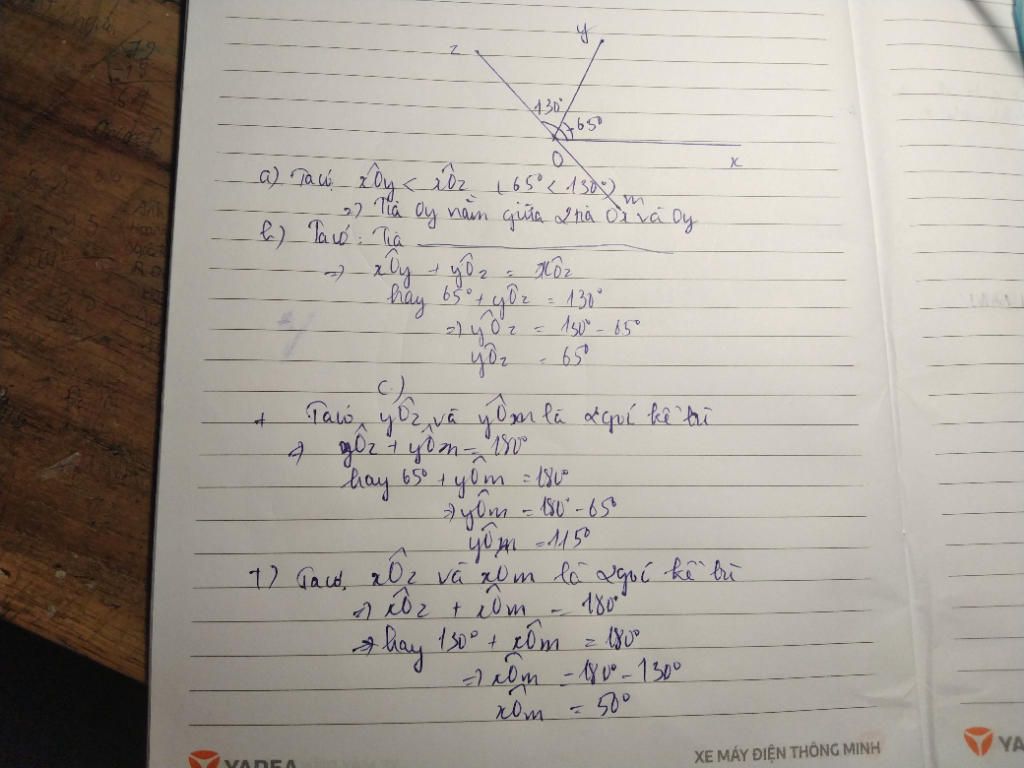 z
y
130°
65°
O
x
m
a) Ta có xÔy < xÔz (65° < 130°)
=> Tia Oy nằm giữa 2 tia Ox và Oy
b) Ta có: Tia
=> xÔy + yÔz = xÔz
hay 65° + yÔz = 130°
=> yÔz = 130° - 65°
yÔz = 65°
c)
+ Ta có yÔz và yÔm là 2 góc kề bù
=> yÔz + yÔm = 180°
hay 65° + yÔm = 180°
=> yÔm = 180° - 65°
yÔm = 115°
+) Ta có, xÔz và xÔm là 2 góc kề bù
=> xÔz + xÔm = 180°
=> hay 130° + xÔm = 180°
=> xÔm = 180° - 130°
xÔm = 50°
YADEA
XE MÁY ĐIỆN THÔNG MINH
YA